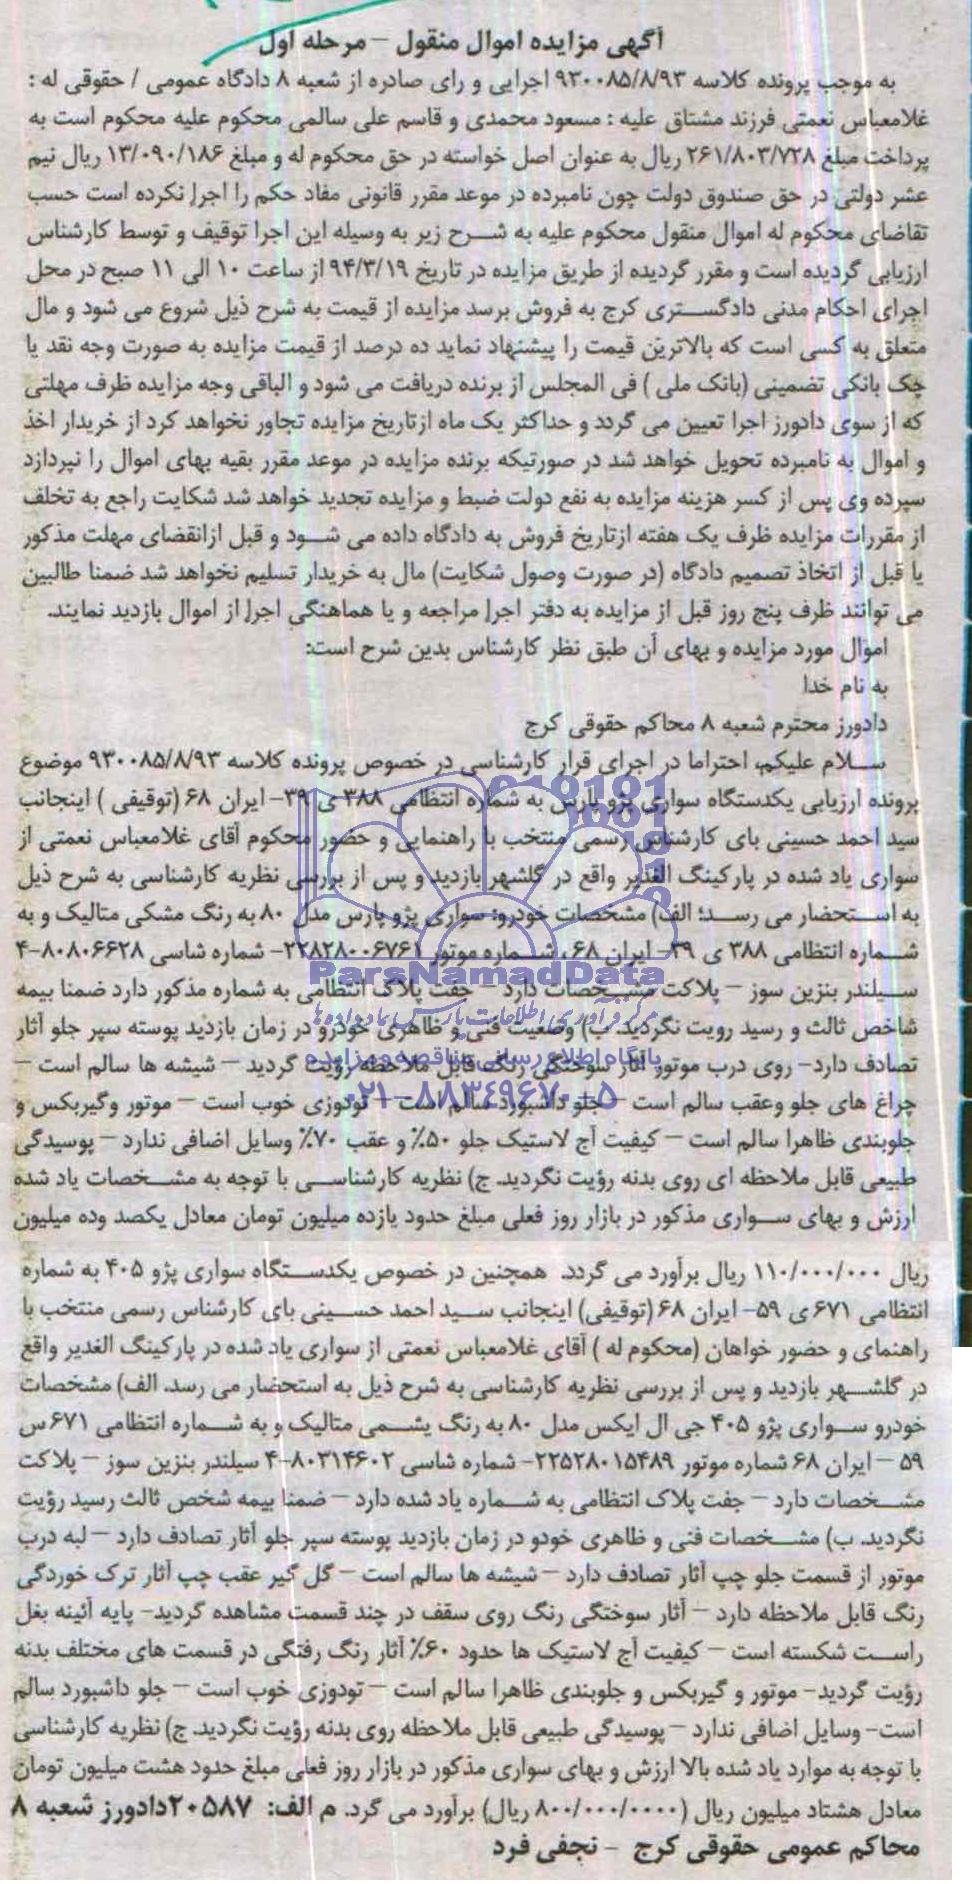 آگهی مزایده اموال منقول – مرحله اول
به موجب پرونده کلاسه ۹۳۰۰۸۵/۸/۹۳ اجرایی و رای صادره از شعبه ۸ دادگاه عمومی / حقوقی له :
غلامعباس نعمتی فرزند مشتاق علیه : مسعود محمدی و قاسم علی سالمی محکوم علیه محکوم است به
پرداخت مبلغ ۲۶۱/۸۰۳/۷۲۸ ریال به عنوان اصل خواسته در حق محکوم له و مبلغ ۱۳/۰۹۰/۱۸۶ ریال نیم
عشر دولتی در حق صندوق دولت چون نامبرده در موعد مقرر قانونی مفاد حکم را اجرا نکرده است حسب
تقاضای محکوم له اموال منقول محکوم علیه به شرح زیر به وسیله این اجرا توقیف و توسط کارشناس
ارزیابی گردیده است و مقرر گردیده از طریق مزایده در تاریخ ۹۴/۳/۱۹ از ساعت ۱۰ الی ۱۱ صبح در محل
اجرای احکام مدنی دادگستری کرج به فروش برسد مزایده از قیمت به شرح ذیل شروع می شود و مال
متعلق به کسی است که بالاترین قیمت را پیشنهاد نماید ده درصد از قیمت مزایده به صورت وجه نقد یا
چک بانکی تضمینی (بانک ملی ) فی المجلس از برنده دریافت می شود و الباقی وجه مزایده ظرف مهلتی
که از سوی دادورز اجرا تعیین می گردد و حداکثر یک ماه ازتاریخ مزایده تجاوز نخواهد کرد از خریدار اخذ
و اموال به نامبرده تحویل خواهد شد در صورتیکه برنده مزایده در موعد مقرر بقیه بهای اموال را نپردازد
سپرده وی پس از کسر هزینه مزایده به نفع دولت ضبط و مزایده تجدید خواهد شد شکایت راجع به تخلف
از مقررات مزایده ظرف یک هفته ازتاریخ فروش به دادگاه داده می شود و قبل ازانقضای مهلت مذکور
یا قبل از اتخاذ تصمیم دادگاه (در صورت وصول شکایت) مال به خریدار تسلیم نخواهد شد ضمنا طالبین
می توانند ظرف پنج روز قبل از مزایده به دفتر اجرا مراجعه و یا هماهنگی اجرا از اموال بازدید نمایند.
اموال مورد مزایده و بهای آن طبق نظر کارشناس بدین شرح است:
به نام خدا
دادورز محترم شعبه ۸ محاکم حقوقی کرج
سلام علیکم، احتراما در اجرای قرار کارشناسی در خصوص پرونده کلاسه ۹۳۰۰۸۵/۸/۹۳ موضوع
پرونده ارزیابی یکدستگاه سواری پژو پارس به شماره انتظامی ۳۸۸ ی ۳۹- ایران ۶۸ (توقیفی ) اینجانب
سید احمد حسینی بای کارشناس رسمی منتخب با راهنمایی و حضور محکوم آقای غلامعباس نعمتی از
سواری یاد شده در پارکینگ الغدیر واقع در گلشهر بازدید و پس از بررسی نظریه کارشناسی به شرح ذیل
به استحضار می رسد؛ الف) مشخصات خودرو: سواری پژو پارس مدل ۸۰ به رنگ مشکی متالیک و به
شماره انتظامی ۳۸۸ ی ۳۹- ایران ۶۸ ، شماره موتور ۲۲۸۲۸۰۰۶۷۶۱- شماره شاسی ۸۰۸۰۶۶۲۸-۴
سیلندر بنزین سوز – پلاکت مشخصات دارد – جفت پلاک انتظامی به شماره مذکور دارد ضمنا بیمه
شاخص ثالث و رسید رویت نگردید. ب) وضعیت فنی و ظاهری خودرو در زمان بازدید پوسته سپر جلو آثار
تصادف دارد- روی درب موتور آثار سوختگی رنگ قابل ملاحظه رؤیت گردید – شیشه ها سالم است –
چراغ های جلو وعقب سالم است – جلو داشبورد سالم است – تودوزی خوب است – موتور وگیربکس و
جلوبندی ظاهرا سالم است – کیفیت آج لاستیک جلو ۵۰٪ و عقب ۷۰٪ وسایل اضافی ندارد – پوسیدگی
طبیعی قابل ملاحظه ای روی بدنه رؤیت نگردید. ج) نظریه کارشناسی با توجه به مشخصات یاد شده
ارزش و بهای سواری مذکور در بازار روز فعلی مبلغ حدود یازده میلیون تومان معادل یکصد وده میلیون
ریال ۱۱۰/۰۰۰/۰۰۰ ریال برآورد می گردد. همچنین در خصوص یکدستگاه سواری پژو ۴۰۵ به شماره
انتظامی ۶۷۱ ی ۵۹- ایران ۶۸ (توقیفی) اینجانب سید احمد حسینی بای کارشناس رسمی منتخب با
راهنمای و حضور خواهان (محکوم له ) آقای غلامعباس نعمتی از سواری یاد شده در پارکینگ الغدیر واقع
در گلشهر بازدید و پس از بررسی نظریه کارشناسی به شرح ذیل به استحضار می رسد. الف) مشخصات
خودرو سواری پژو ۴۰۵ جی ال ایکس مدل ۸۰ به رنگ یشمی متالیک و به شماره انتظامی ۶۷۱ س
۵۹ – ایران ۶۸ شماره موتور ۲۲۵۲۸۰۱۵۴۸۹- شماره شاسی ۸۰۳۱۴۶۰۲-۴ سیلندر بنزین سوز – پلاکت
مشخصات دارد – جفت پلاک انتظامی به شماره یاد شده دارد – ضمنا بیمه شخص ثالث رسید رؤیت
نگردید. ب) مشخصات فنی و ظاهری خودو در زمان بازدید پوسته سپر جلو آثار تصادف دارد – لبه درب
موتور از قسمت جلو چپ آثار تصادف دارد – شیشه ها سالم است – گل گیر عقب چپ آثار ترک خوردگی
رنگ قابل ملاحظه دارد – آثار سوختگی رنگ روی سقف در چند قسمت مشاهده گردید- پایه آئینه بغل
راست شکسته است – کیفیت آج لاستیک ها حدود ۶۰٪ آثار رنگ رفتگی در قسمت های مختلف بدنه
رؤیت گردید- موتور و گیربکس و جلوبندی ظاهرا سالم است – تودوزی خوب است – جلو داشبورد سالم
است- وسایل اضافی ندارد – پوسیدگی طبیعی قابل ملاحظه روی بدنه رؤیت نگردید. ج) نظریه کارشناسی
با توجه به موارد یاد شده بالا ارزش و بهای سواری مذکور در بازار روز فعلی مبلغ حدود هشت میلیون تومان
معادل هشتاد میلیون ریال (۸۰۰/۰۰۰/۰۰۰۰ ریال) برآورد می گرد. م الف: ۲۰۵۸۷ دادورز شعبه ۸
محاکم عمومی حقوقی کرج - نجفی فرد
ParsNamadData
مرکز فرآوری اطلاعات پارس نماد داده ها
پایگاه اطلاع رسانی مناقصه و مزایده
۰۲۱-۸۸۳۴۹۶۷۰-۵